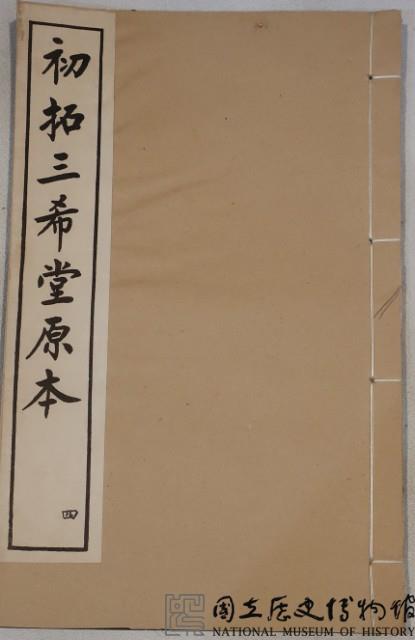 初拓三希堂原本
四
國立歷史博物館
NATIONAL MUSEUM OF HISTORY